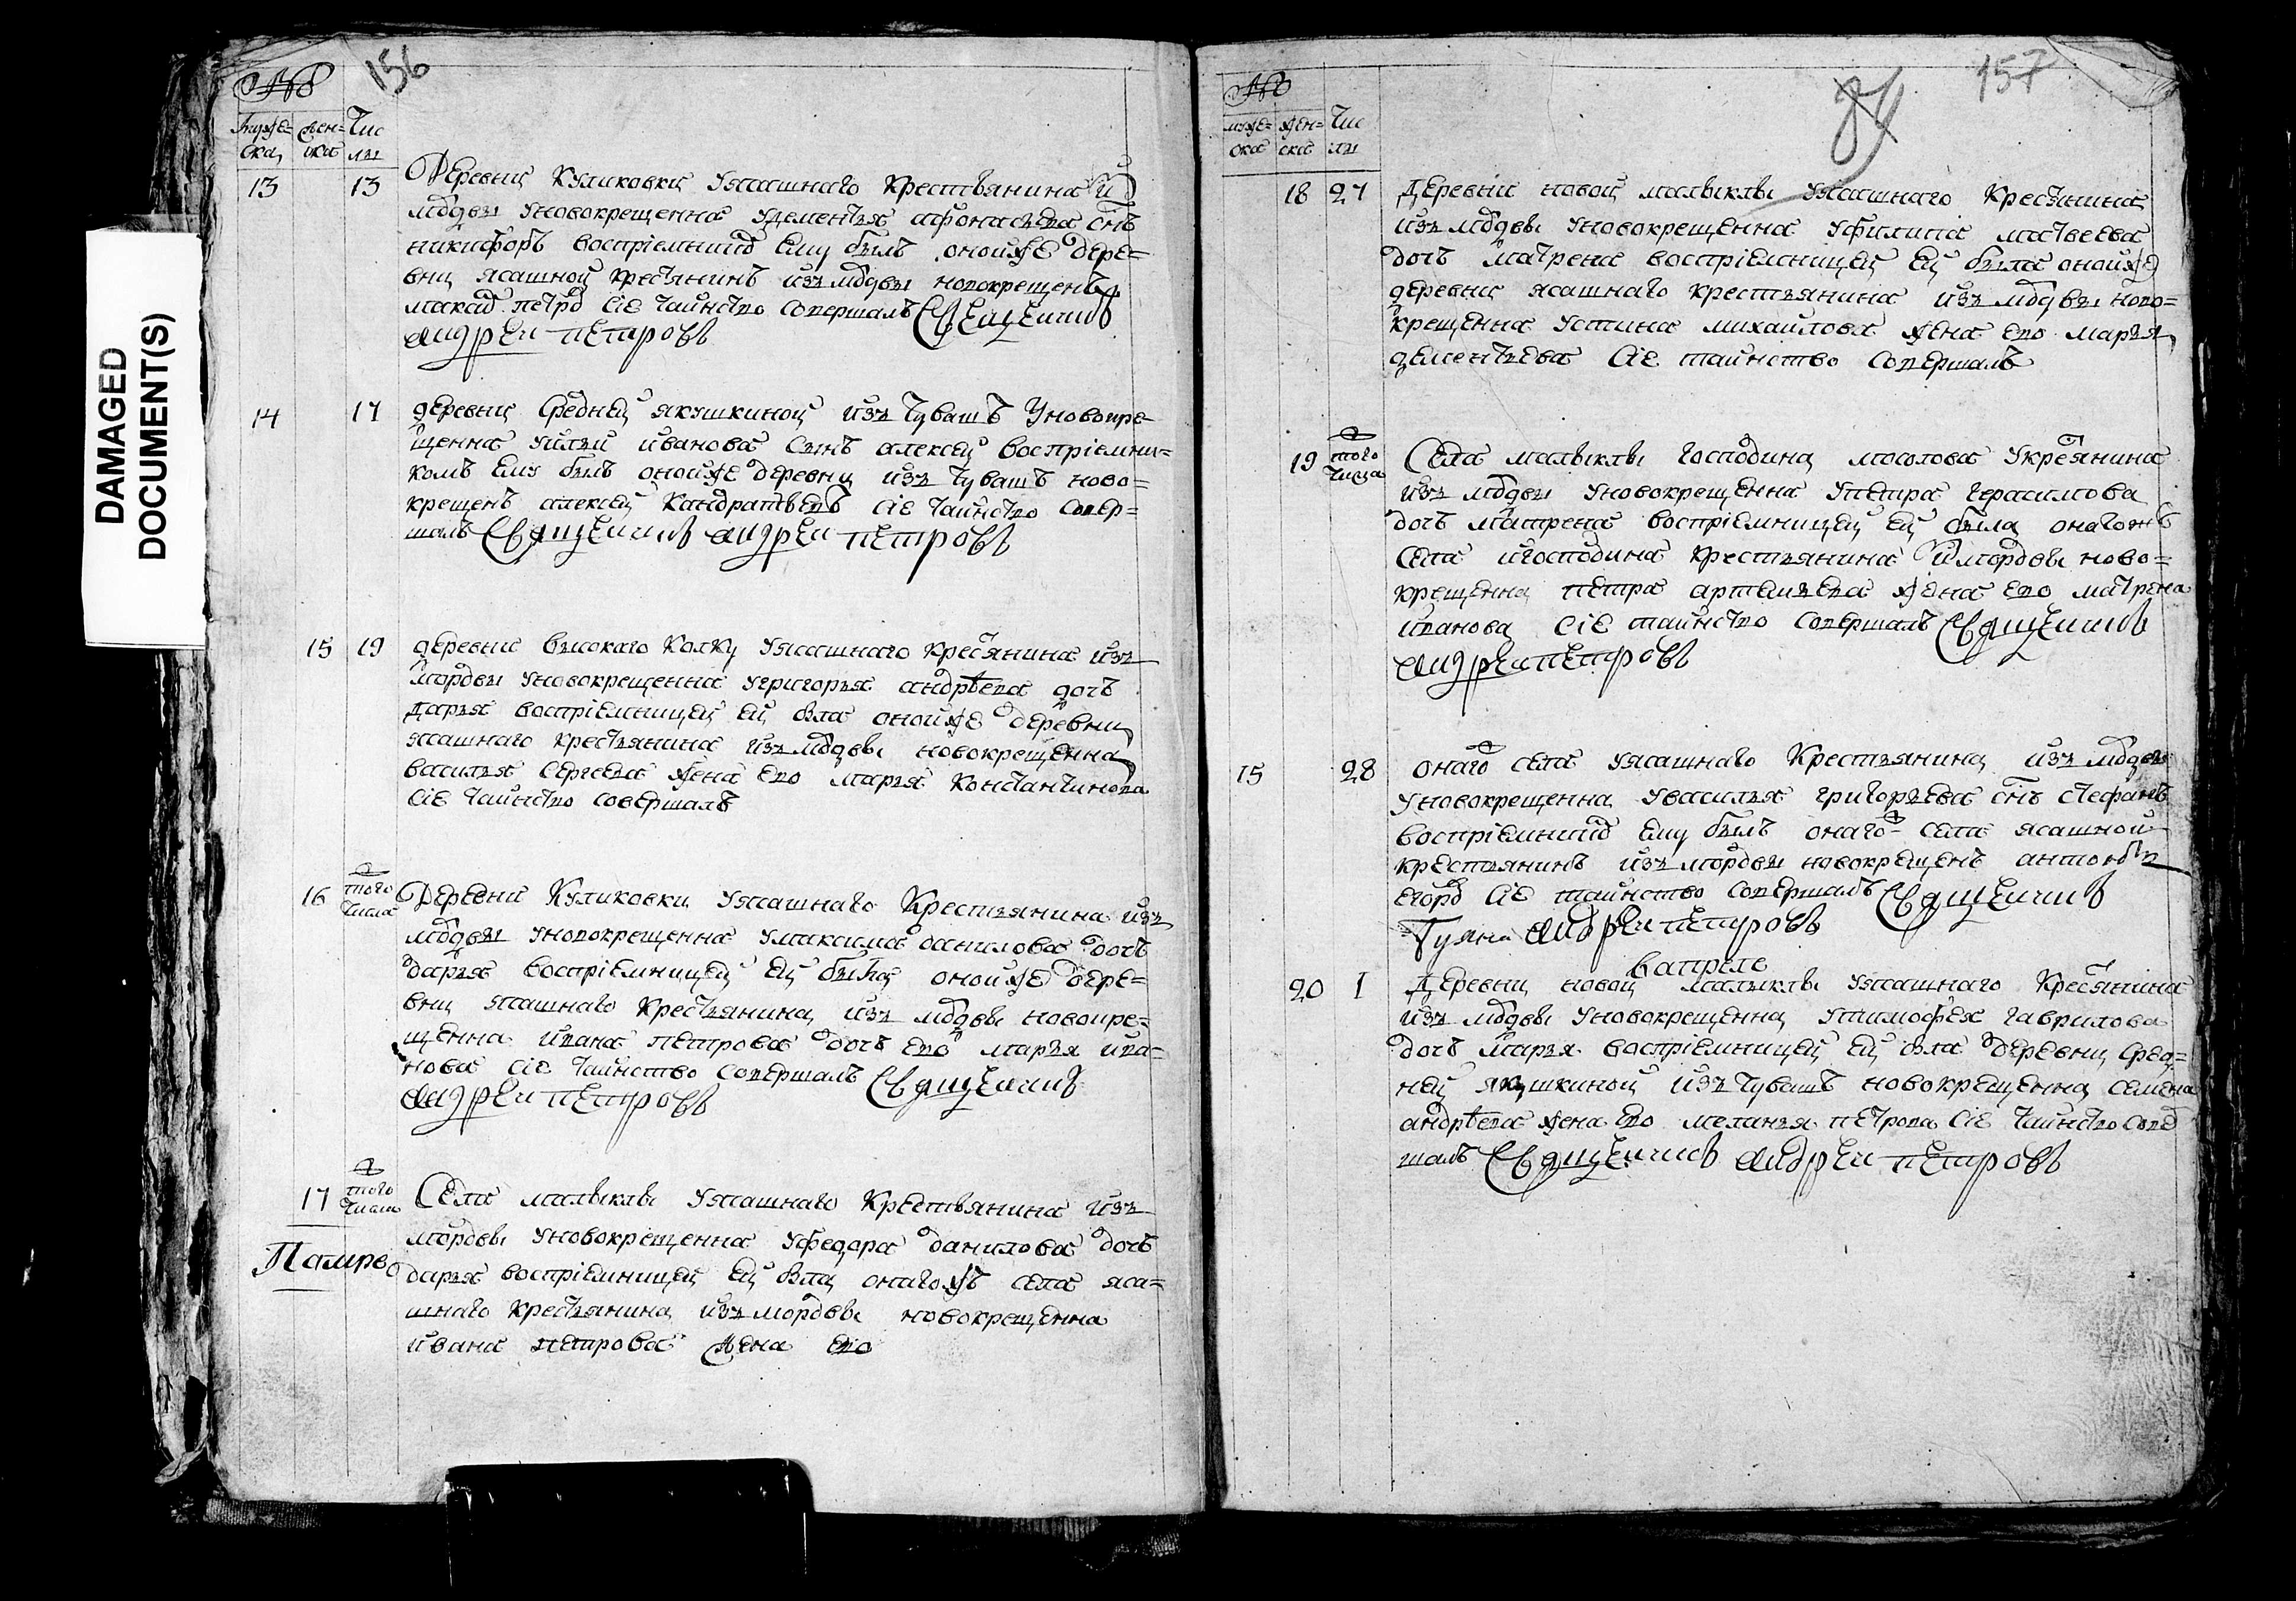 DAMAGED
DOCUMENT(S)
156
№
муже-
ска
жен-
ска
Чис
лы
13 13 Деревни Куликовки уясашнаго Крестьянина из
мордвы уновокрещенна удементья афонасьева снъ
никифоръ воспріемникъ Ему былъ оной же дере=
вни ясашной крестьянинъ изъ мордвы новокрещенъ
макар петров сіе таинство совершалъ Священникъ
андреи петровъ
14 17 деревни Средней якушкиной изъ Чувашъ Уновокре=
щенна уильи иванова Сынъ алексей воспріемни=
комъ Ему былъ оной же деревни изъ Чувашъ ново=
крещенъ алексей Кандратьевъ сіе таинство совер=
шалъ Священникъ андреи петровъ
15 19 деревни высокаго Колку уясашнаго крестьянина изъ
мордвы уновокрещенна угригорья андрѣева дочь
дарья воспріемницей ей была оной же деревни
ясашнаго крестьянина изъ мордвы новокрещенна
василья Сергеева жена его марья Константинова
сіе таинство совершалъ
16 того
числа
Деревни Куликовки уясашнаго Крестьянина изъ
мордвы уновокрещенна умаксима данилова дочь
дарья воспріемницей ей была оной же дере=
вни ясашнаго Крестьянина изъ мордвы новокре=
щенна ивана петрова дочь его марья ива=
нова сіе таинство совершалъ Священникъ
андреи петровъ
17 того
числа
Села малыклы уясашнаго Крестьянина изъ
мордвы уновокрещенна уфедора данилова дочь
дарья воспріемницей ей была онагожъ села яса=
шнаго крестьянина изъ мордвы новокрещенна
ивана петрова жена его
157
№
муже=
ска
жен=
ска
Чис
лы
18 27 Деревни новой малыклы уясашнаго Крестьянина
изъ мордвы уновокрещенна уфилипа матвеева
дочь матрена воспріемницей ей была оной же
деревни ясашнаго крестьянина изъ мордвы ново=
крещенна устина михайлова жена его марья
дементьева Сіе таинство совершалъ
19 того
числа
Села малыклы господина мосолова укрестьянина
изъ мордвы уновокрещенна упетра герасимова
дочь матрена воспріемницей ей была онагожъ
села игосподина крестьянина из мордвы ново=
крещенна петра артемьева жена его матрена
иванова сіе таинство совершалъ Священникъ
андреи петровъ
15 28 онаго села уясашнаго Крестьянина изъ мордвы
уновокрещенна увасилья григорьева снъ стефанъ
воспріемникъ Ему былъ онаго села ясашной
крестьянинъ изъ мордвы новокрещенъ антонъ
егоров сіе таинство совершалъ Священникъ
андреи петровъ
в апреле
20 1 Деревни новой малыклы уясашнаго Крестьянина
изъ мордвы уновокрещенна утимофея гаврилова
дочь марья воспріемницей ей была деревни сред=
ней якушкиной изъ Чувашъ новокрещенна семена
андрѣева жена его меланья петрова Сіе таинство совер
шалъ Священникъ андреи петровъ